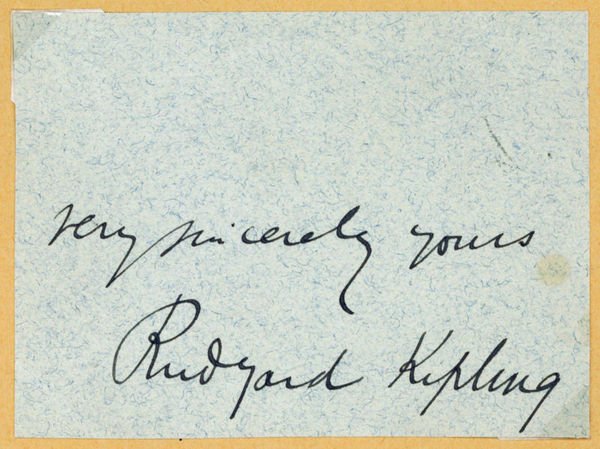 very sincerely yours
Rudyard Kipling